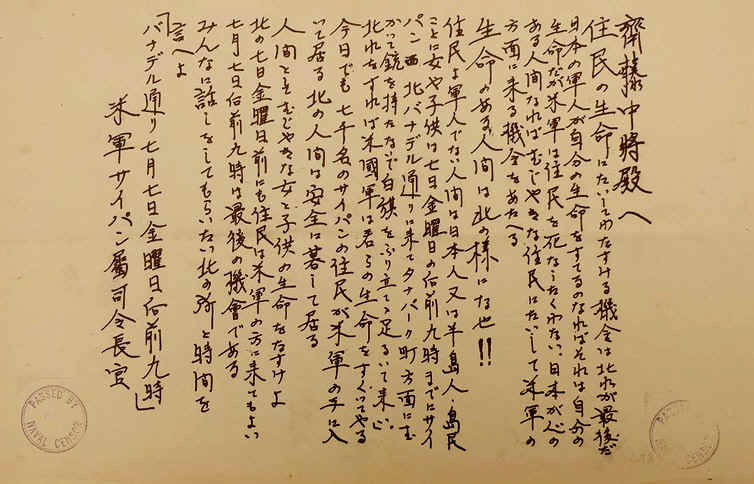 齋藤中將殿へ
住民の生命にたいしてわたすみる機会は北れが最後だ
日本の軍人が自分の生命をすてるのなればそれは自分の
生命だが米軍は住民を死なしたくわない、日本が心の
ある人間なればむじやきな住民にたいして米軍の
方面に来る機会をあたへる
生命のある人間は北の様にな也!!
住民よ軍人でない人間は日本人又は半島人・島民
ことに女や子供は七日金曜日の后前九時までにサイ
パン西北バナデル通りに来てタナパーク町方面にむ
かつて銃を持たないで白旗をふり立てゝ足るいて来い
北れをすれば米國軍は君らの生命をすくつてやる
今日でも七千名のサイパンの住民が米軍の手に入
いて居る北の人間は安全に暮して居る
人間としむじやきな女と子供の生命をたすけよ
北の七日金曜日前にも住民は米軍の方に来てもよい
七月七日后前九時は最後の機會である
みんなに話しをしてもらいたい北の所と時間を
「言へよ
バナデル通り七月七日金曜日后前九時」
米軍サイパン屬司令長官
PASSED BY
NAVAL CENSOR